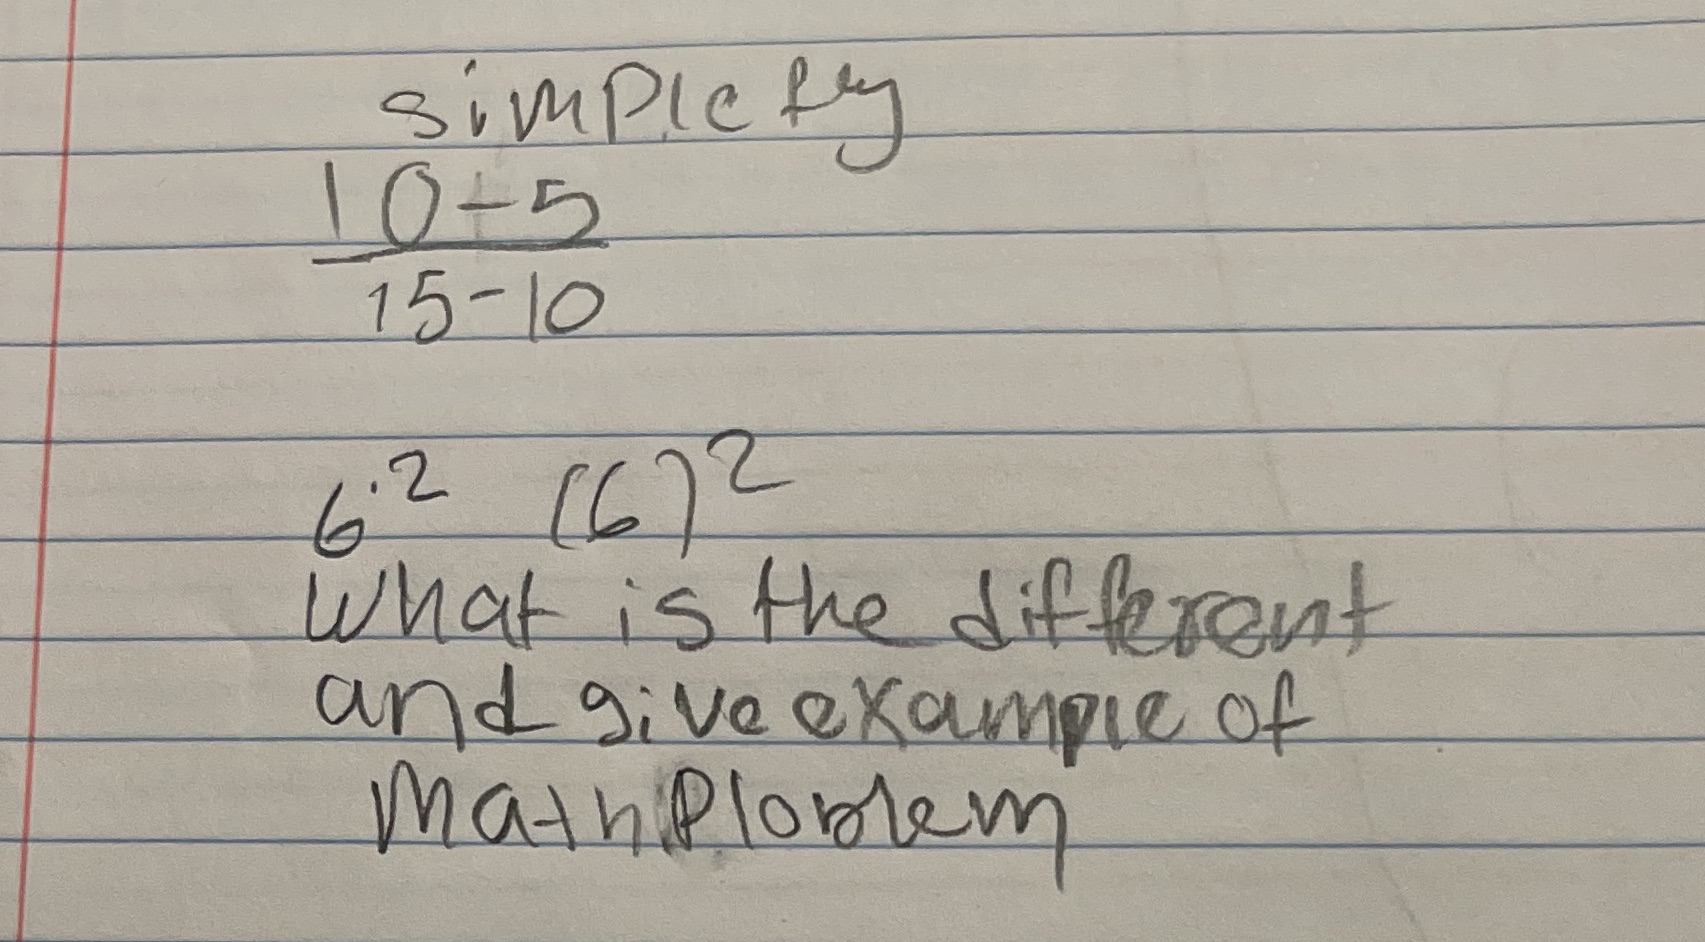 simplefy
10-5
15-10
6² (6)²
What is the different
and give example of
Math Ploblem